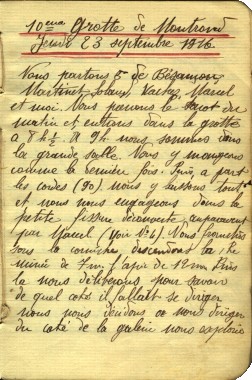 10ème Grotte de Montrond
Jeudi 23 septembre 1926
Nous partons 5 de Besançon
Martinet, Marcel
et moi. Nous prenons le du
matin et entrons dans la grotte
à 8h½. A 9h nous sommes dans
la grande salle. Nous y mangeons
comme la dernière fois. Puis, à part
les cordes (90) nous y laissons tout
et nous nous engageons dans la
petite fissure découverte auparavant
par Marcel (Voir No 6). Nous
sous la corniche descendons la 1re
de 7m, l'apic de 12m. Puis
là nous délibérons pour savoir
de quel coté il allait se diriger
nous nous décidons à nous diriger
du coté de la galerie nous